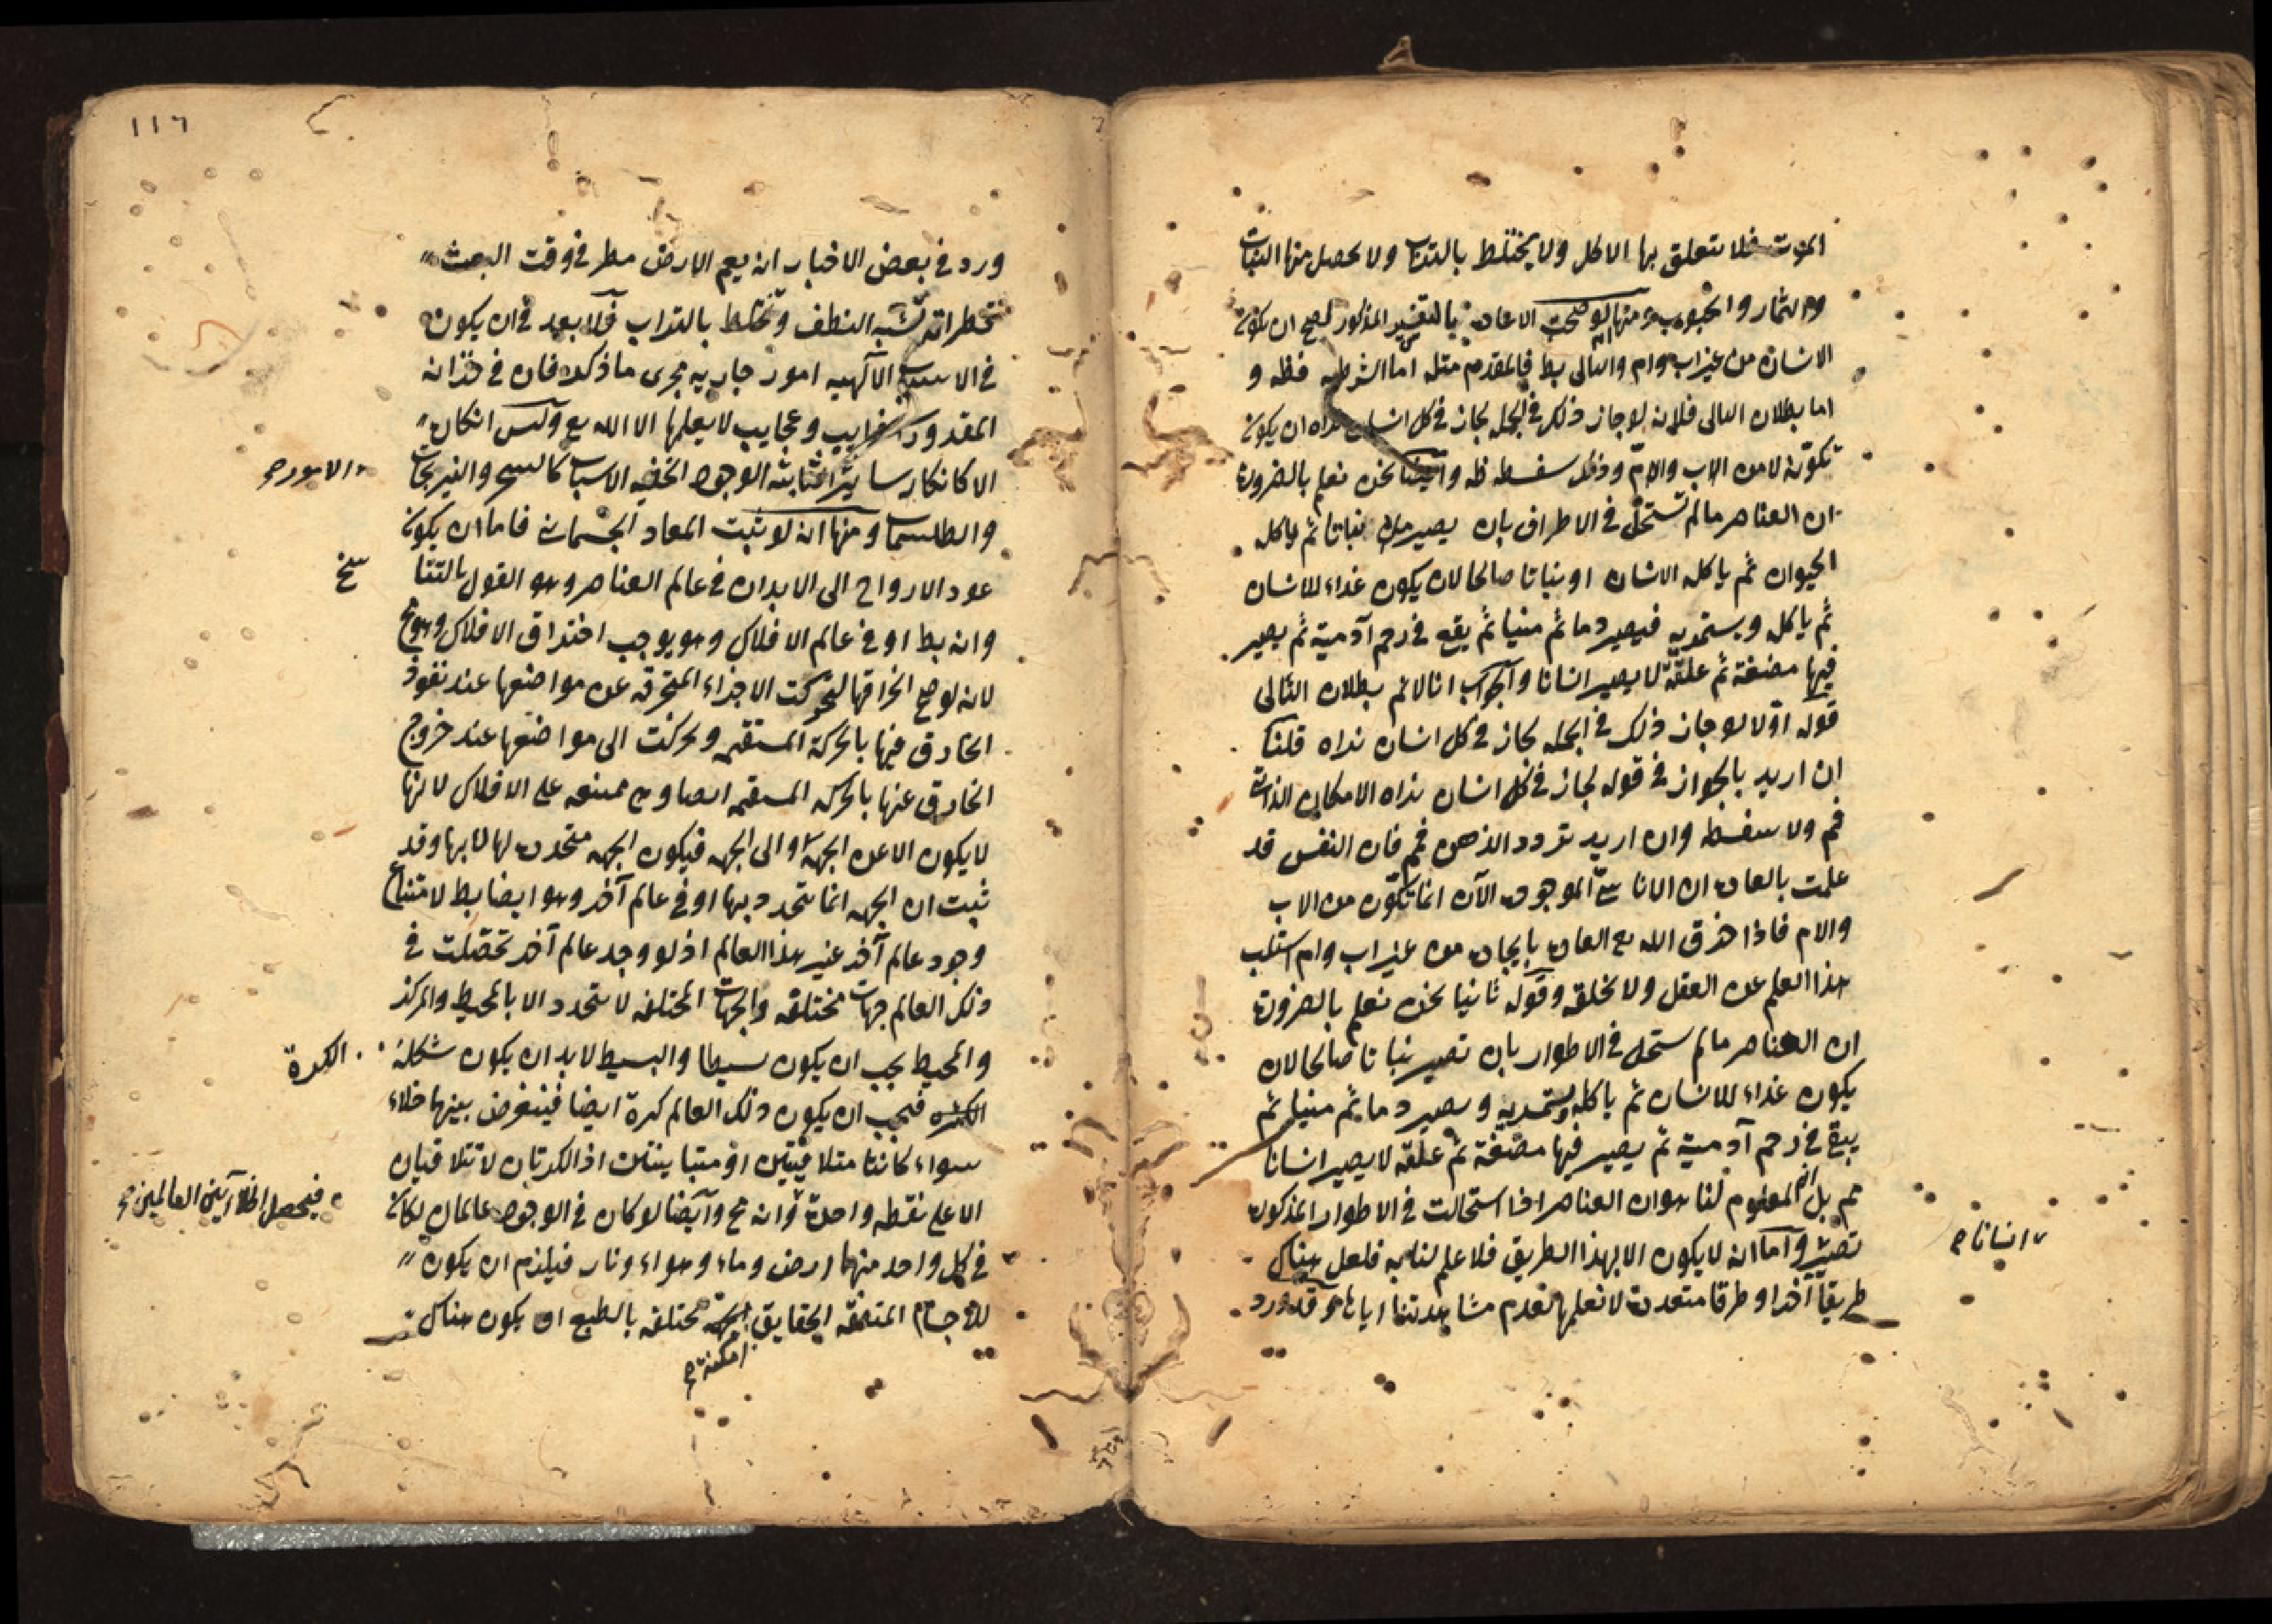 الموت فلا تتعلق بها الاكل ولا يختلط بالتراب ولا يحصل منها النبات
والثمار والحبوب ومنها انه لو صحت الاعادة بالتفسير المذكور لصح ان يكون
الانسان من غير اب وام والتالى بط فالمقدم مثله اما الشرطيه فظه و
اما بطلان التالى فلانه لو جاز ذلك فى الجمله لجاز فى كل انسان نراه ان يكون
تكوّنه لا من الاب والامّ وذلك سفسطه ظه وايضا نحن نعلم بالضرورة
ان العناصر ما لم تستحل فى الاطراف بان يصير نباتا ثم ياكله
الحيوان ثم ياكله الانسان او نباتا صالحا لان يكون غذاء للانسان
ثم ياكله ويستمريه فيصير دما ثم منيا ثم يقع فى رحم آدمية ثم يصير
فيها مضغة ثم علقة لا يصير انسانا والجواب انا لا نم بطلان التالى
قوله اوّلا لو جاز ذلك فى الجمله لجاز فى كل انسان نراه قلنا
ان اريد بالجواز فى قوله لجاز فى كل انسان نراه الامكان الذاتى
فم ولا سفسطه وان اريد تردد الذهن فم فان النفس قد
علمت بالعادة ان الاناسىّ الموجودة الآن انما تكوّن من الاب
والام فاذا خرق الله تع العادة بايجاده من غير اب وام استلب
هذا العلم عن العقل ولا يخلقه وقوله ثانيا نحن نعلم بالضرورة
ان العناصر ما لم ستحل فى الاطوار بان تصير نباتا صالحا لان
يكون غذاء للانسان ثم ياكله ويستمريه ويصير دما ثم منيا ثم
يقع فى رحم آدمية ثم يصير فيها مضغة ثم علقة لا يصير انسانا
مم بل المعلوم لنا هو ان العناصر اذا استحالت فى الاطوار المذكورة
تصير واما انه لا يكون الا بهذا الطريق فلا علم لنا به فلعل هناك
انسانا
طريقا آخر او طرقا متعددة لا نعلمها لعدم مشاهدتنا اياها وقد ورد
١١٦
ورد فى بعض الاخبار انه يعم الارض مطر فى وقت البعث
قطراته تشبه النطف وتختلط بالتراب فلا بعد فى ان يكون
فى الاسباب الآلهيه امور جاريه مجرى ما ذكره فان فى خزانه
المقدورات غرايب وعجايب لا يعلمها الا الله تع وليس انكاره
الا كانكار ساير الوجود الخفيه الاسباب كالسحر والنيرنجات
الامور
والطلسمات ومنها انه لو ثبت المعاد الجسمانى فاما ان يكون
عود الارواح الى الابدان فى عالم العناصر وهو القول بالتنا
سخ
وانه بط او فى عالم الافلاك وهو يوجب اختراق الافلاك وهو مح
لانه لو صح انخراقها لتحركت الاجزاء المتخرقه عن مواضعها عند نفوذ
الخارق فيها بالحركة المستقيمه وتحركت الى مواضعها عند خروج
الخارق عنها بالحركه المستقيمه ايضا وهى ممتنعه على الافلاك لانها
لا يكون الا عن الجهة او الى الجهه فيكون الجهه متحددة لها لا بها وقد
ثبت ان الجهه انما تتحدد بها او فى عالم آخر وهو ايضا بط لامتناع
وجود عالم آخر غير هذا العالم اذ لو وجد عالم آخر تحصّلت فى
ذلك العالم جهات مختلفه والجهات المختلفه لا تتحدد الا بالمحيط والمركز
والمحيط يجب ان يكون بسيطا والبسيط لا بد ان يكون شكله
الكرة
الكره فيجب ان يكون ذلك العالم كرة ايضا فينفرض بينها خلاء
سواء كانتا متلاقيتين او متباينتين اذ الكرتان لا تتلاقيان
الا على نقطه واحدة وانه مح وايضا لو كان فى الوجود عالمان لكان
فيحصل الخلا بين العالمين
فى كل واحد منهما ارض وماء وهواء ونار فيلزم ان يكون
للاجسام المتفقة الحقايق مختلفه بالطبع او يكون هناك
امكنة